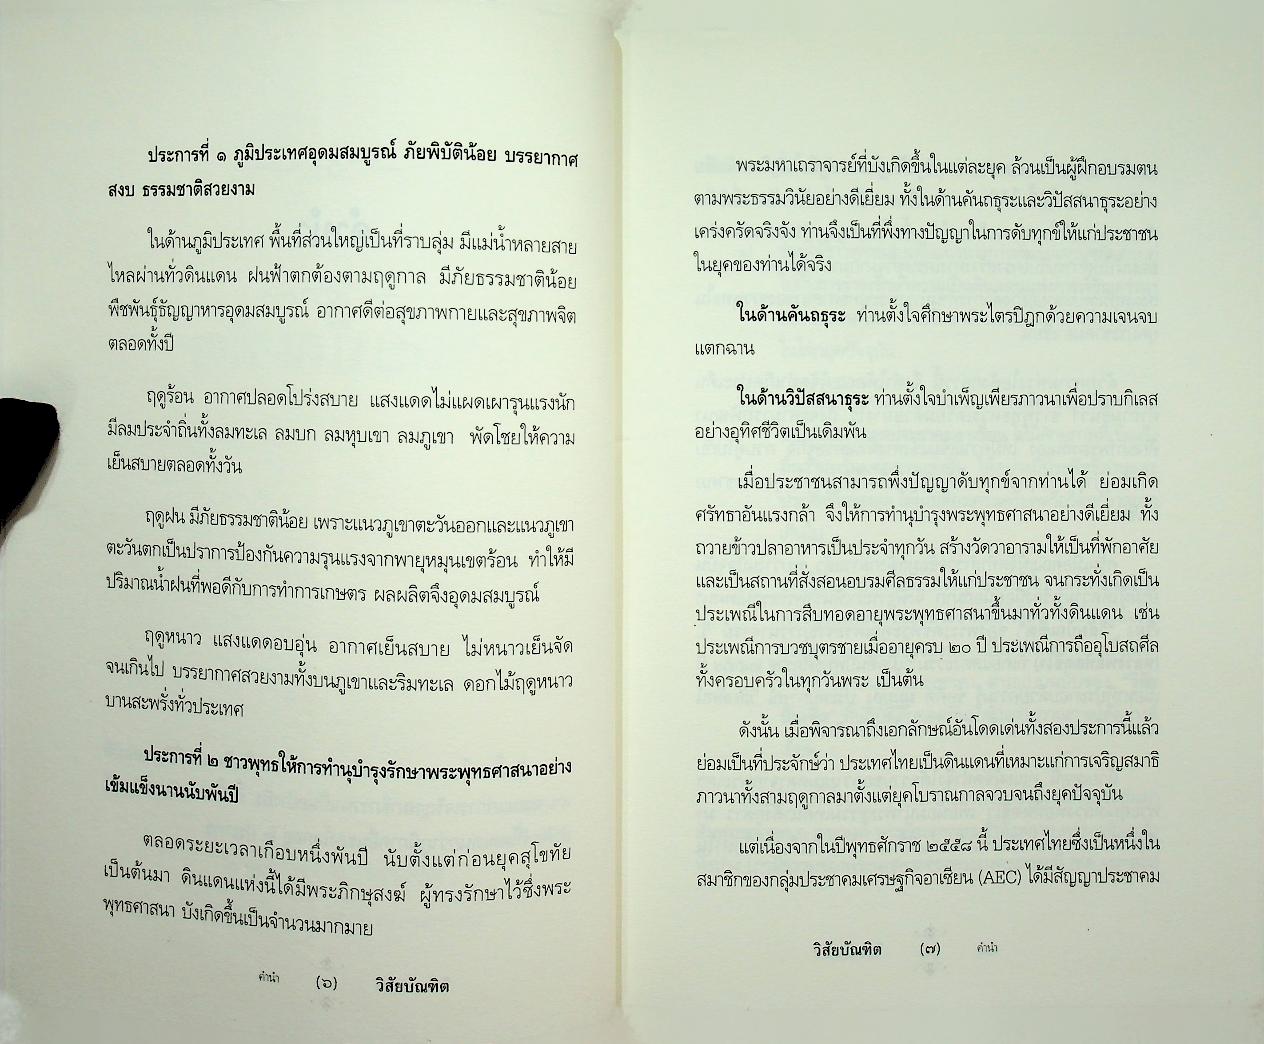 ประการที่ ๑ ภูมิประเทศอุดมสมบูรณ์ ภัยพิบัติน้อย บรรยากาศ
สงบ ธรรมชาติสวยงาม
ในด้านภูมิประเทศ พื้นที่ส่วนใหญ่เป็นที่ราบลุ่ม มีแม่น้ำหลายสาย
ไหลผ่านทั่วดินแดน ฝนฟ้าตกต้องตามฤดูกาล มีภัยธรรมชาติน้อย
พืชพันธุ์ธัญญาหารอุดมสมบูรณ์ อากาศดีต่อสุขภาพกายและสุขภาพจิต
ตลอดทั้งปี
ฤดูร้อน อากาศปลอดโปร่งสบาย แสงแดดไม่แผดเผารุนแรงนัก
มีลมประจำถิ่นทั้งลมทะเล ลมบก ลมหุบเขา ลมภูเขา พัดโชยให้ความ
เย็นสบายตลอดทั้งวัน
ฤดูฝน มีภัยธรรมชาติน้อย เพราะแนวภูเขาตะวันออกและแนวภูเขา
ตะวันตกเป็นปราการป้องกันความรุนแรงจากพายุหมุนเขตร้อน ทำให้มี
ปริมาณน้ำฝนที่พอดีกับการทำการเกษตร ผลผลิตจึงอุดมสมบูรณ์
ฤดูหนาว แสงแดดอบอุ่น อากาศเย็นสบาย ไม่หนาวเย็นจัด
จนเกินไป บรรยากาศสวยงามทั้งบนภูเขาและริมทะเล ดอกไม้ฤดูหนาว
บานสะพรั่งทั่วประเทศ
ประการที่ ๒ ชาวพุทธให้การทำนุบำรุงรักษาพระพุทธศาสนาอย่าง
เข้มแข็งนานนับพันปี
ตลอดระยะเวลาเกือบหนึ่งพันปี นับตั้งแต่ก่อนยุคสุโขทัย
เป็นต้นมา ดินแดนแห่งนี้ได้มีพระภิกษุสงฆ์ ผู้ทรงรักษาไว้ซึ่งพระ
พุทธศาสนา บังเกิดขึ้นเป็นจำนวนมากมาย
คำนำ (๖) วิสัยบัณฑิต
พระมหาเถราจารย์ที่บังเกิดขึ้นในแต่ละยุค ล้วนเป็นผู้ฝึกอบรมตน
ตามพระธรรมวินัยอย่างดีเยี่ยม ทั้งในด้านคันถธุระและวิปัสสนาธุระอย่าง
เคร่งครัดจริงจัง ท่านจึงเป็นที่พึ่งทางปัญญาในการดับทุกข์ให้แก่ประชาชน
ในยุคของท่านได้จริง
ในด้านคันถธุระ ท่านตั้งใจศึกษาพระไตรปิฎกด้วยความเจนจบ
แตกฉาน
ในด้านวิปัสสนาธุระ ท่านตั้งใจบำเพ็ญเพียรภาวนาเพื่อปราบกิเลส
อย่างอุทิศชีวิตเป็นเดิมพัน
เมื่อประชาชนสามารถพึ่งปัญญาดับทุกข์จากท่านได้ ย่อมเกิด
ศรัทธาอันแรงกล้า จึงให้การทำนุบำรุงพระพุทธศาสนาอย่างดีเยี่ยม ทั้ง
ถวายข้าวปลาอาหารเป็นประจำทุกวัน สร้างวัดวาอารามให้เป็นที่พักอาศัย
และเป็นสถานที่สั่งสอนอบรมศีลธรรมให้แก่ประชาชน จนกระทั่งเกิดเป็น
ประเพณีในการสืบทอดอายุพระพุทธศาสนาขึ้นมาทั่วทั้งดินแดน เช่น
ประเพณีการบวชบุตรชายเมื่ออายุครบ ๒๐ ปี ประเพณีการถืออุโบสถศีล
ทั้งครอบครัวในทุกวันพระ เป็นต้น
ดังนั้น เมื่อพิจารณาถึงเอกลักษณ์อันโดดเด่นทั้งสองประการนี้แล้ว
ย่อมเป็นที่ประจักษ์ว่า ประเทศไทยเป็นดินแดนที่เหมาะแก่การเจริญสมาธิ
ภาวนาทั้งสามฤดูกาลมาตั้งแต่ยุคโบราณกาลจวบจนถึงยุคปัจจุบัน
แต่เนื่องจากในปีพุทธศักราช ๒๕๕๘ นี้ ประเทศไทยซึ่งเป็นหนึ่งใน
สมาชิกของกลุ่มประชาคมเศรษฐกิจอาเซียน (AEC) ได้มีสัญญาประชาคม
วิสัยบัณฑิต (๗) คำนำ